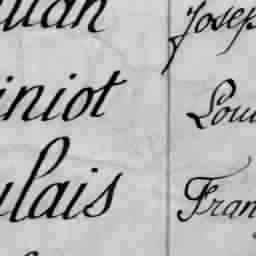 Josep
iniot Lou
lais Fran